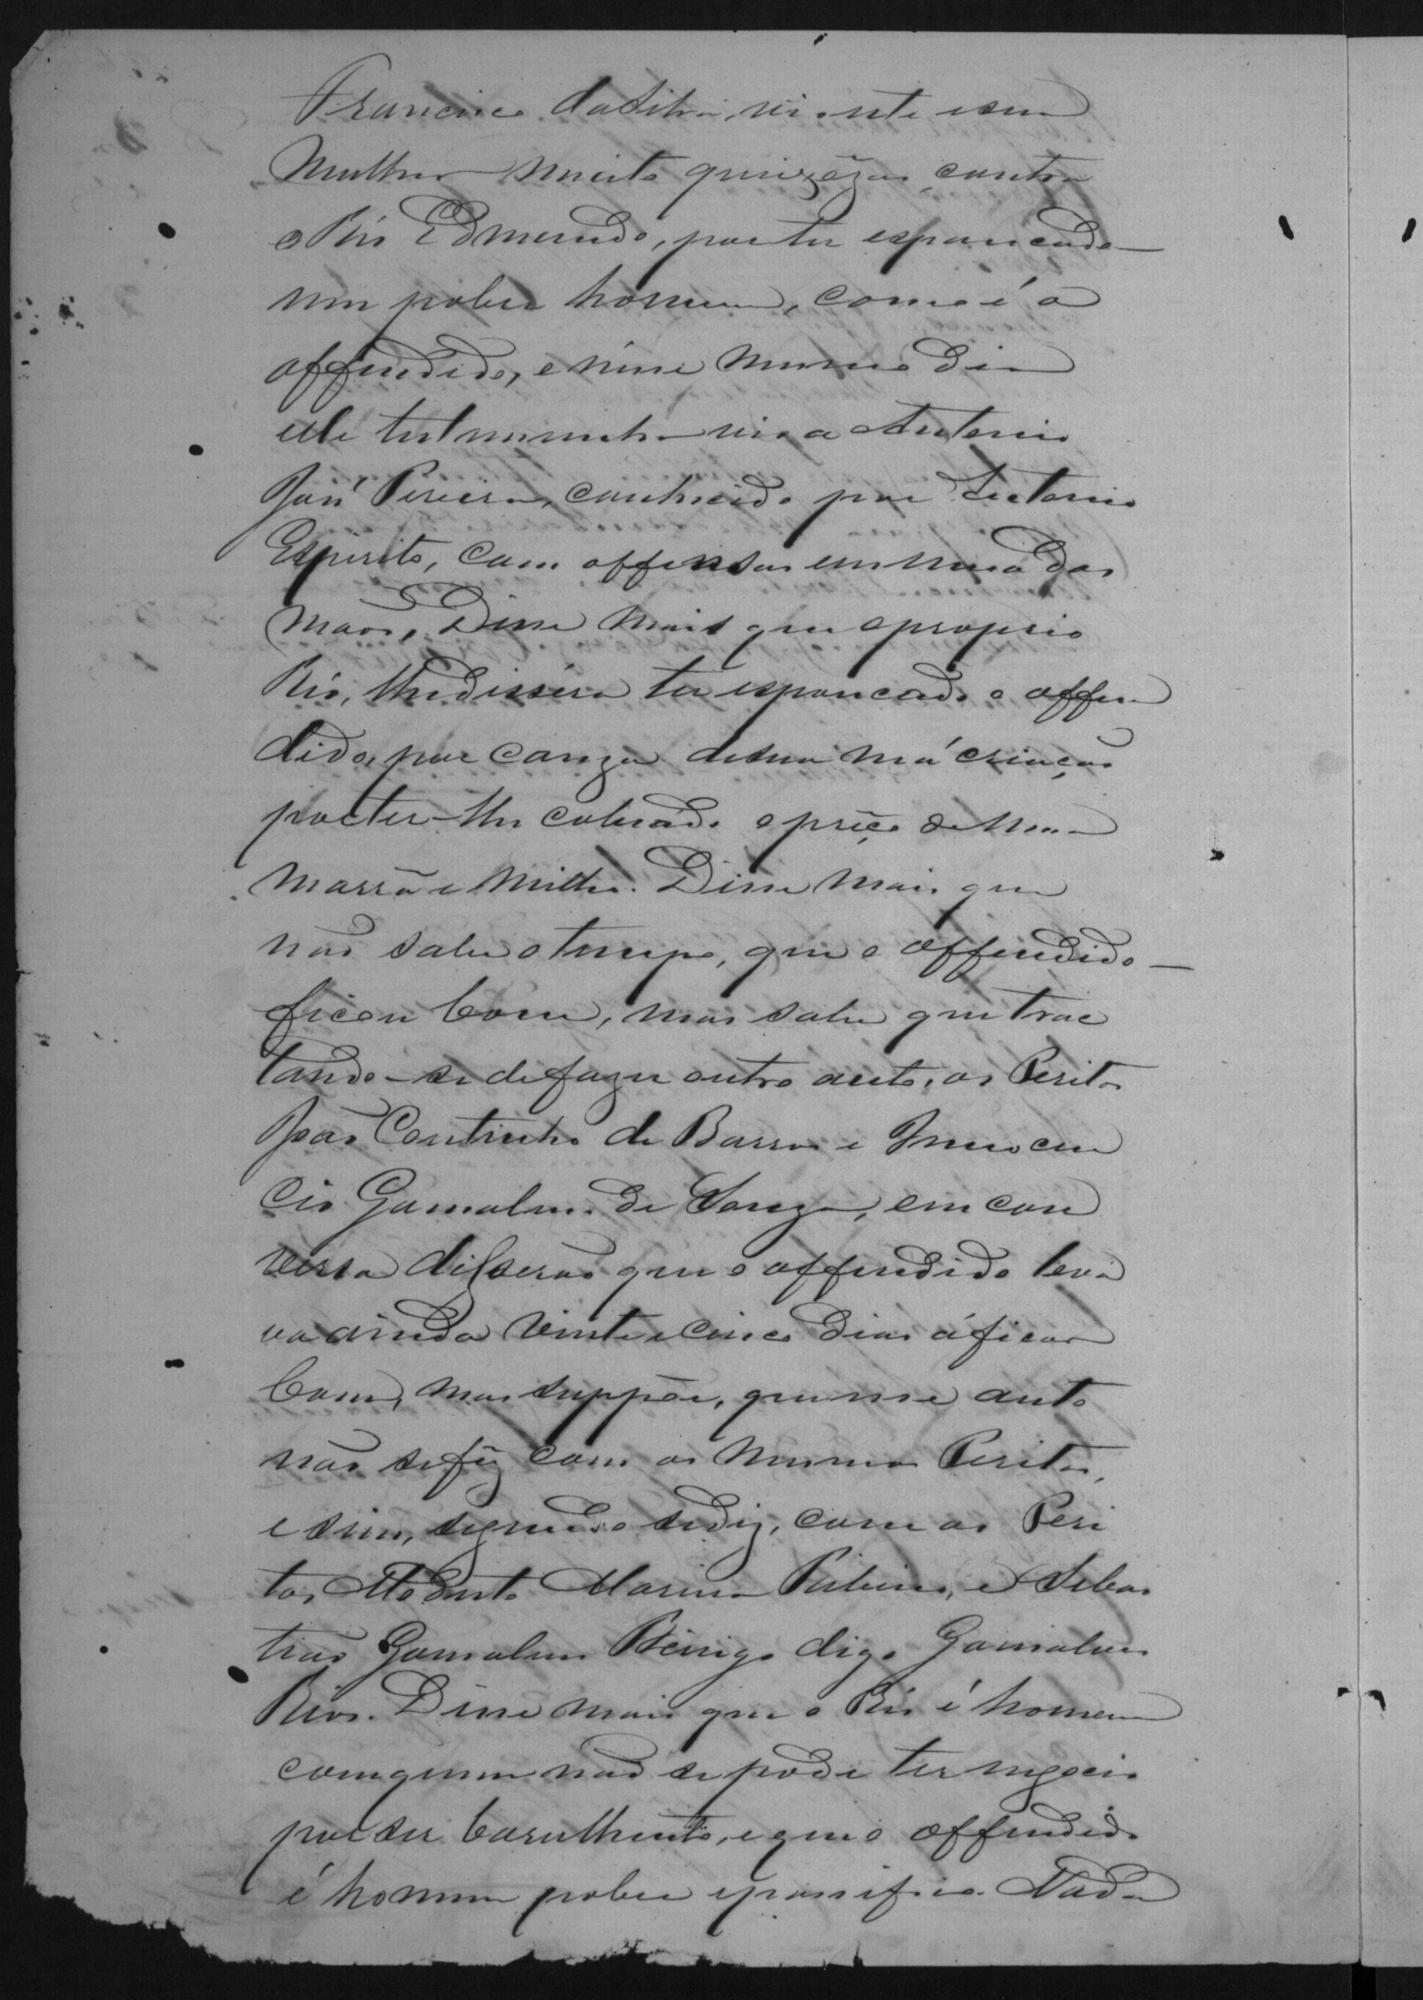 Francisco da Silva, vicente e sua
mulher muito queixozos contra
o Réo Edmundo, por ter espancado
um pobre homem, como é o
offendido, e nesse mesmo dia
elle testemunha vio a Antonio
José Pereira, conhecido por Antonio
Espirito, com offensas em uma das
mãos. Disse mais que o proprio
Réo, lhe dissera ter espancado o offen
dido, por cauza de sua má criação
por ter-lhe cobrado o preço de uma
marrã e milho. Disse mais que
não sabe o tempo, que o offendido
ficou bom, mas sabe que trac
tando-se de fazer outro auto, os Peritos
João Coutinho de Barros e Innocen
cio Gonsalves de Souza, em con
versa disserão que o offendido leva
va ainda vinte e cinco dias á ficar
bom, mas suppõe, que esse auto
não se fez com os mesmos Peritos,
e sim, segundo se diz, com os Peri
tos Modesto Ribeiro, e Sebas
tião Gonsalves digo Gonsalves
Rios. Disse mais que o Réo é homem
com quem não se pode ter negocio
por ser barulhento, e que o offendido
é homem pobre e passifico. Nada